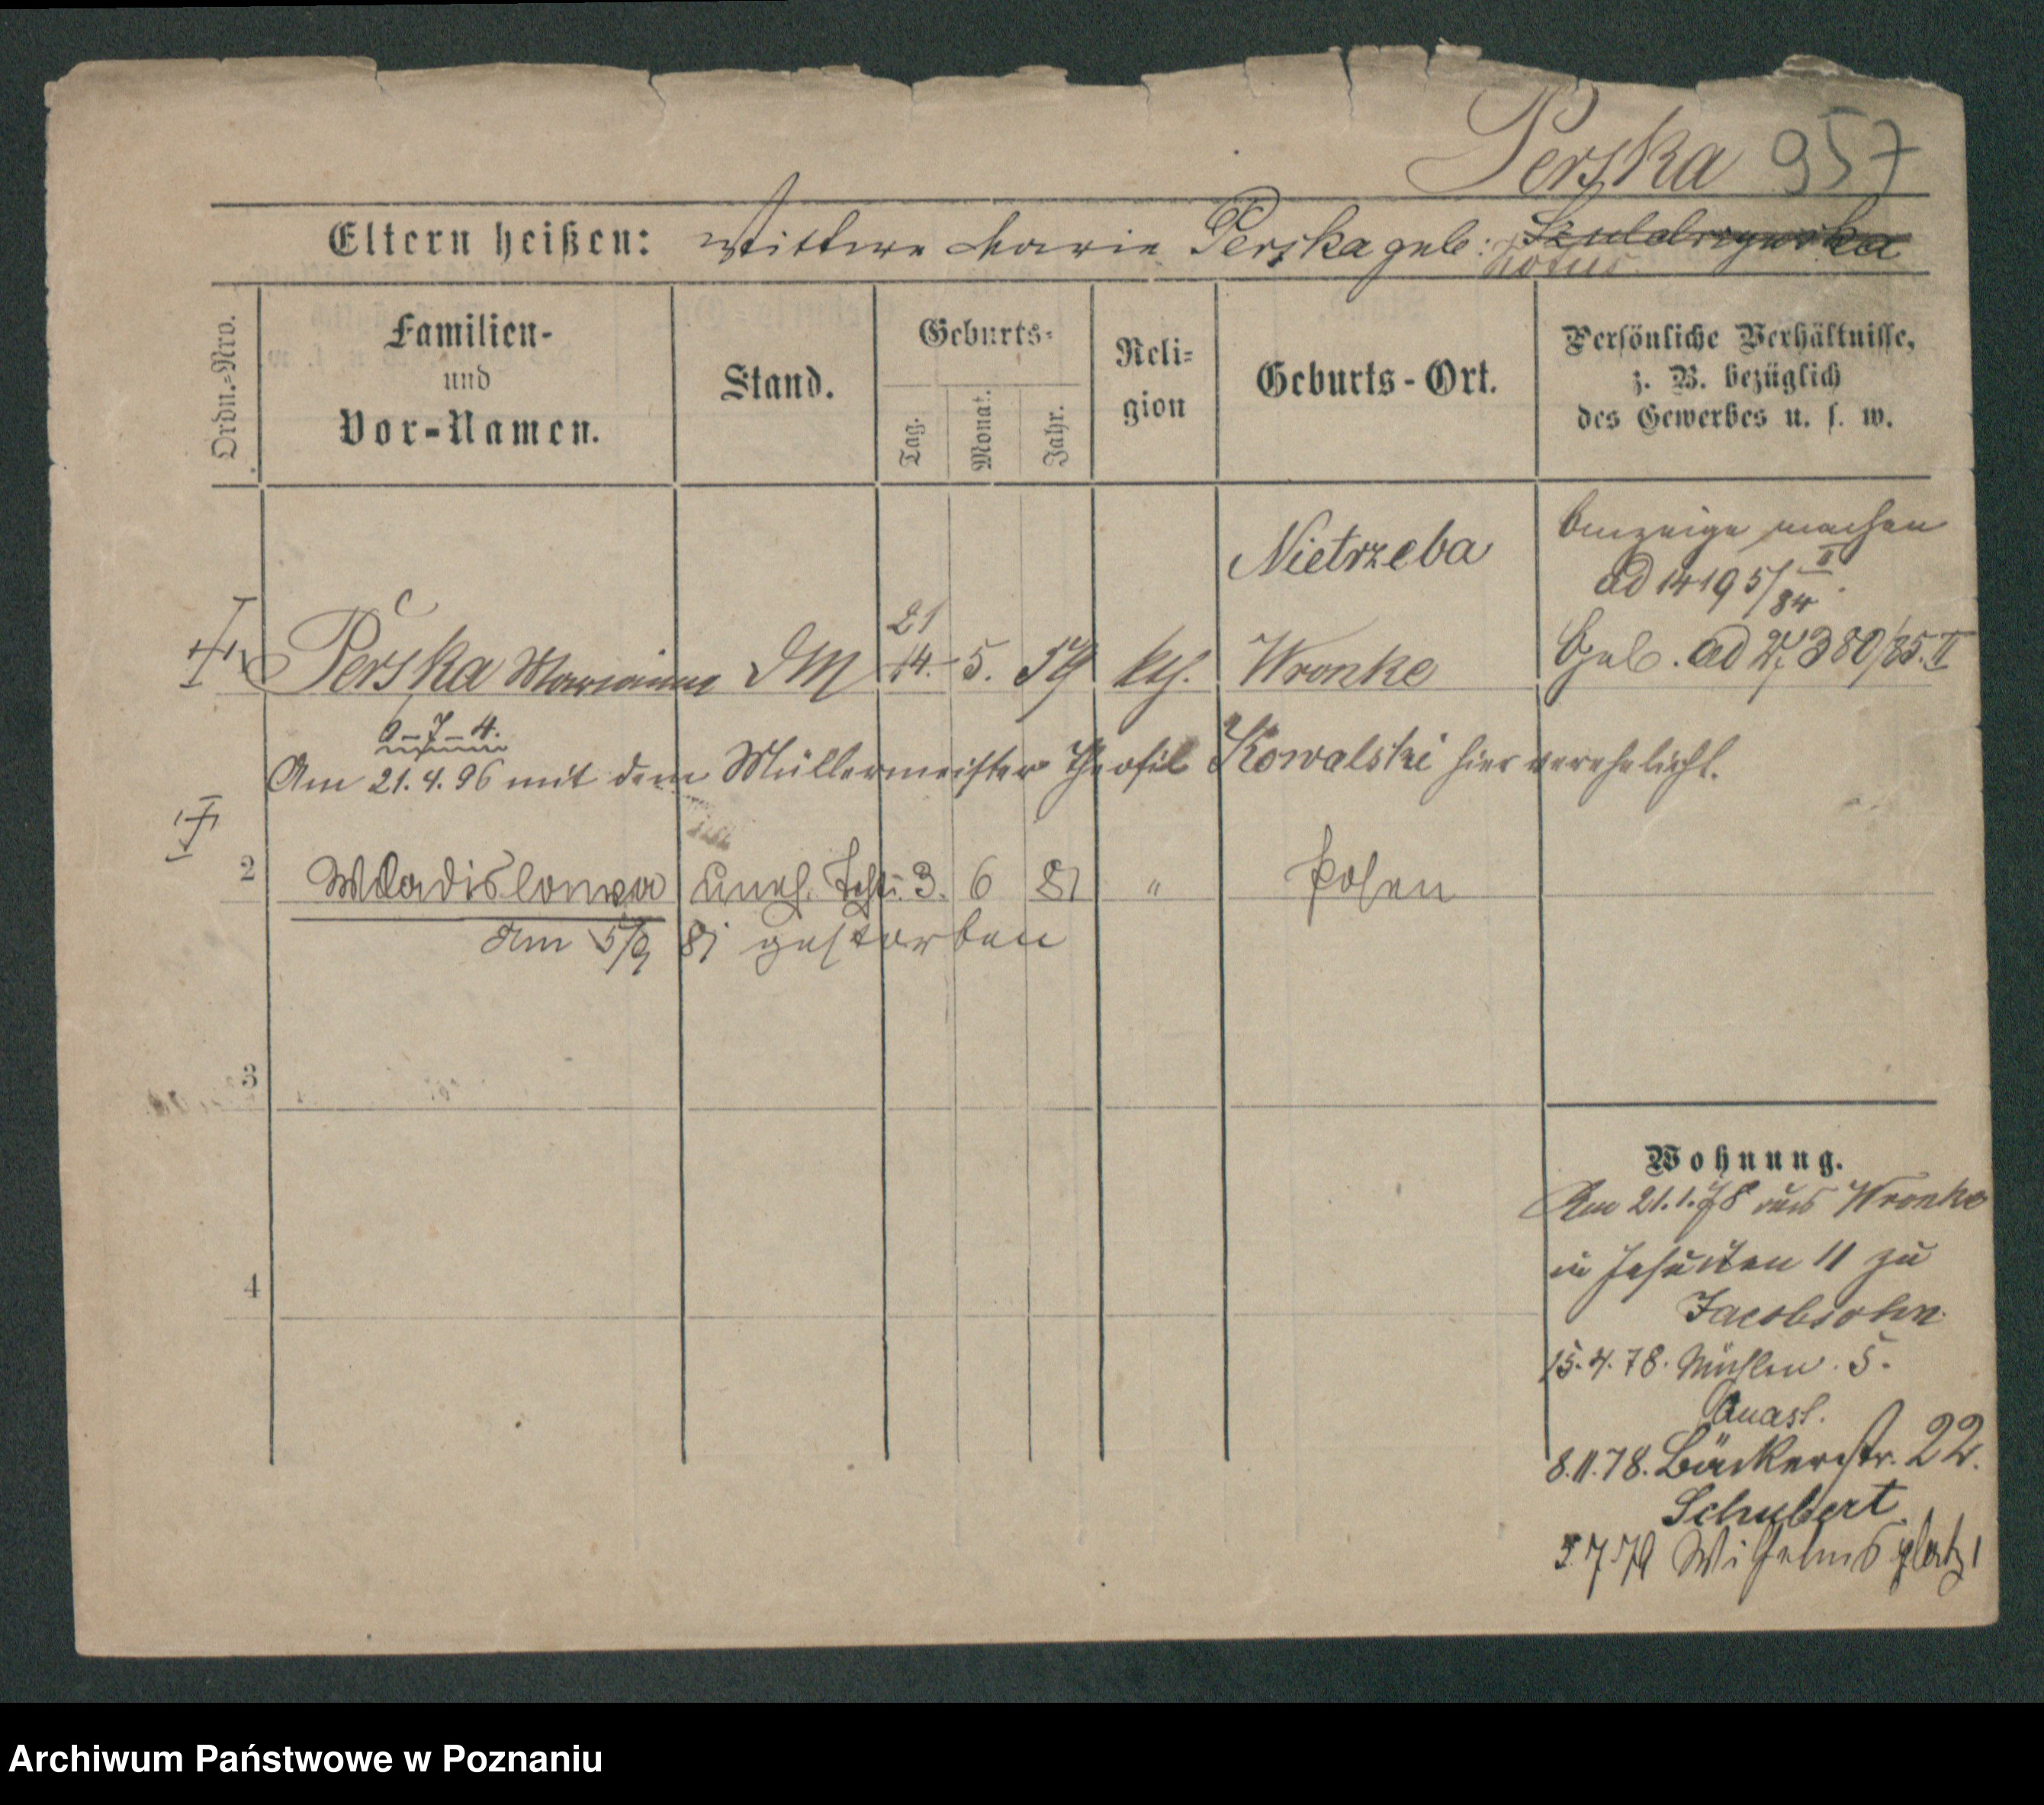 Perska 957
Eltern heißen: Wittwe Marie Perska geb:
Ordn.-Nro.
Familien-
und
Vor-Namen.
Stand.
Geburts-
Tag.
Monat.
Jahr.
Reli-
gion
Geburts-Ort.
Persönliche Verhältnisse,
z. B. bezüglich
des Gewerbes u. s. w.
Nietrzeba
Anzeige machen
ad 14195/II 84.
Perska Marianna DM 21 14. 5. 59 kth. Wronke
ad 27380/85. II
Am 21. 4. 96 mit dem Müllermeister Theofil Kowalski hier verehelicht.
2 Wladislawa uneh. Tcht. 3. 6 81 " Posen
Am 5/9 81 gestorben
3
4
Wohnung.
Am 21.1.78 aus Wronke
in Jesuiten 11 zu
Jacobsohn.
15.4.78. Mühlen. 5.
8.11.78. Bäckerstr. 22.
Schubert
5.7.79 Wilhelmsplatz 1
Archiwum Państwowe w Poznaniu